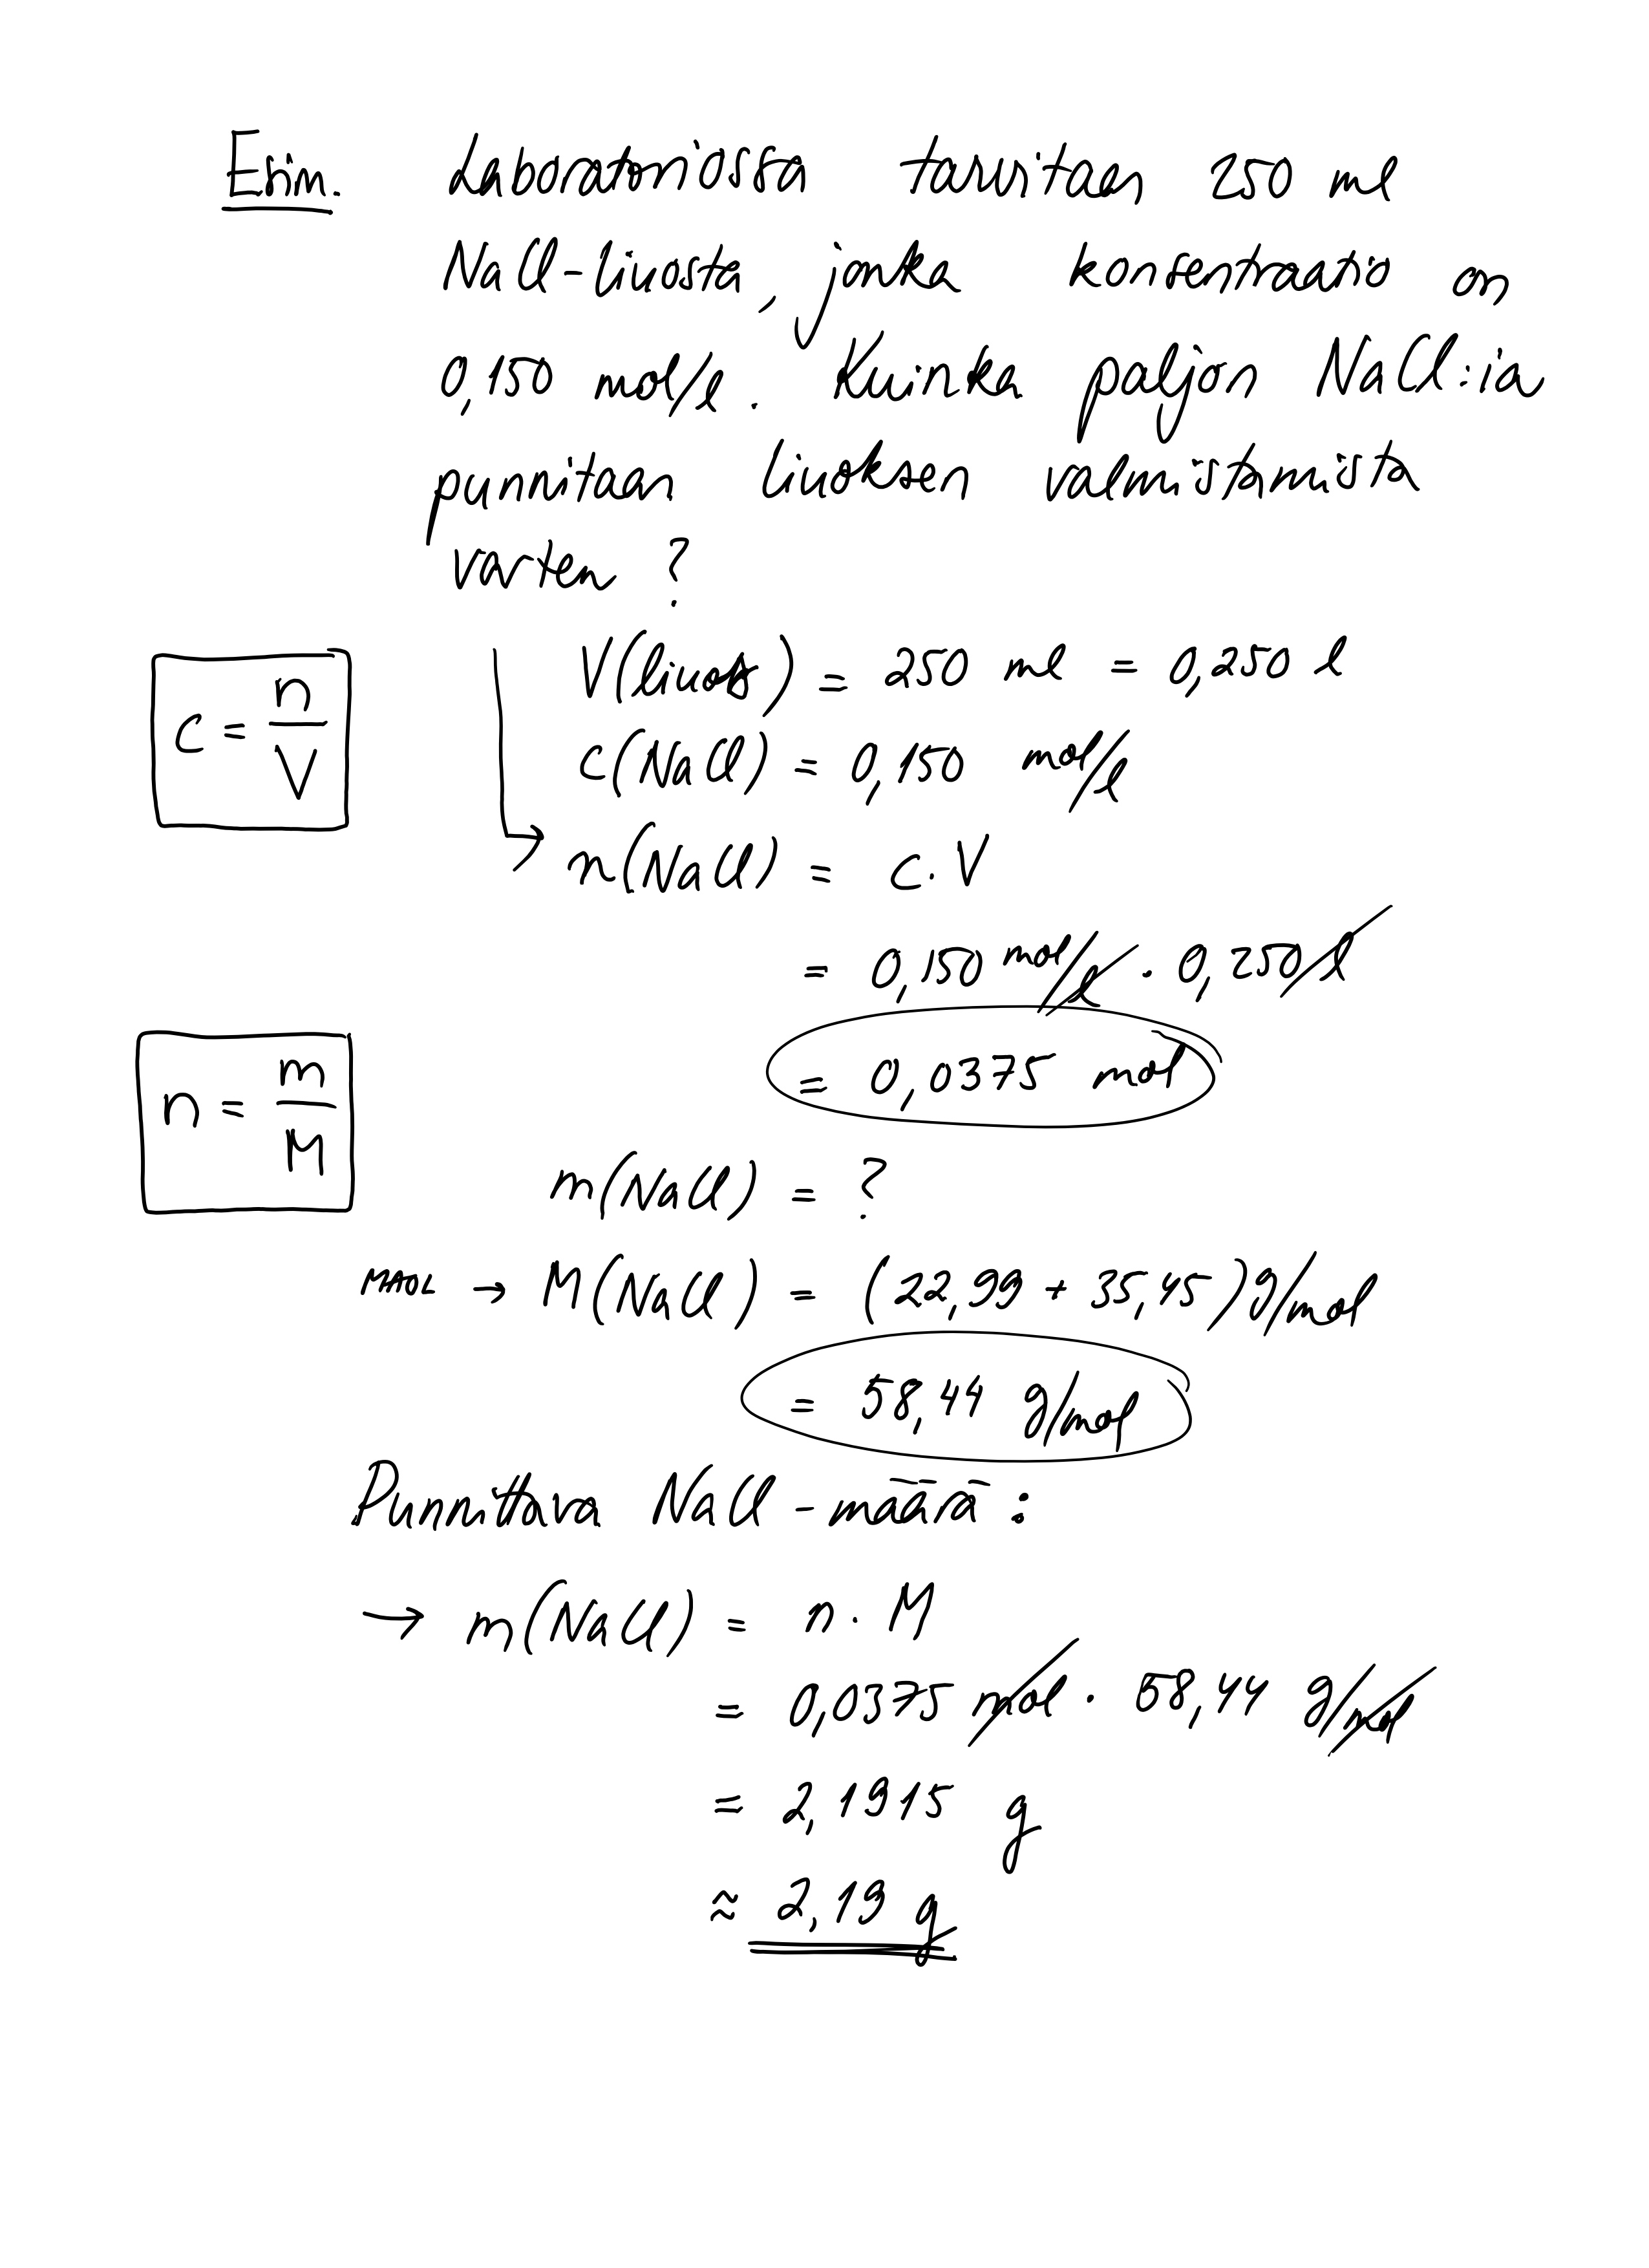 Esim. Laboratoriossa tarvitaan 250 ml
NaCl-liuosta, jonka konsentraatio on
0,150 mol/l. Kuinka paljon NaCl:ia
punnitaan liuoksen valmistamista
varten ?
c = n/V
V(liuos) = 250 ml = 0,250 l
c(NaCl) = 0,150 mol/l
→ n(NaCl) = c · V
= 0,150 mol/l · 0,250 l
= 0,0375 mol
n = m/M
m(NaCl) = ?
MAOL → M(NaCl) = (22,99 + 35,45) g/mol
= 58,44 g/mol
Punnittava NaCl-määrä :
→ m(NaCl) = n · M
= 0,0375 mol · 58,44 g/mol
= 2,1915 g
≈ 2,19 g